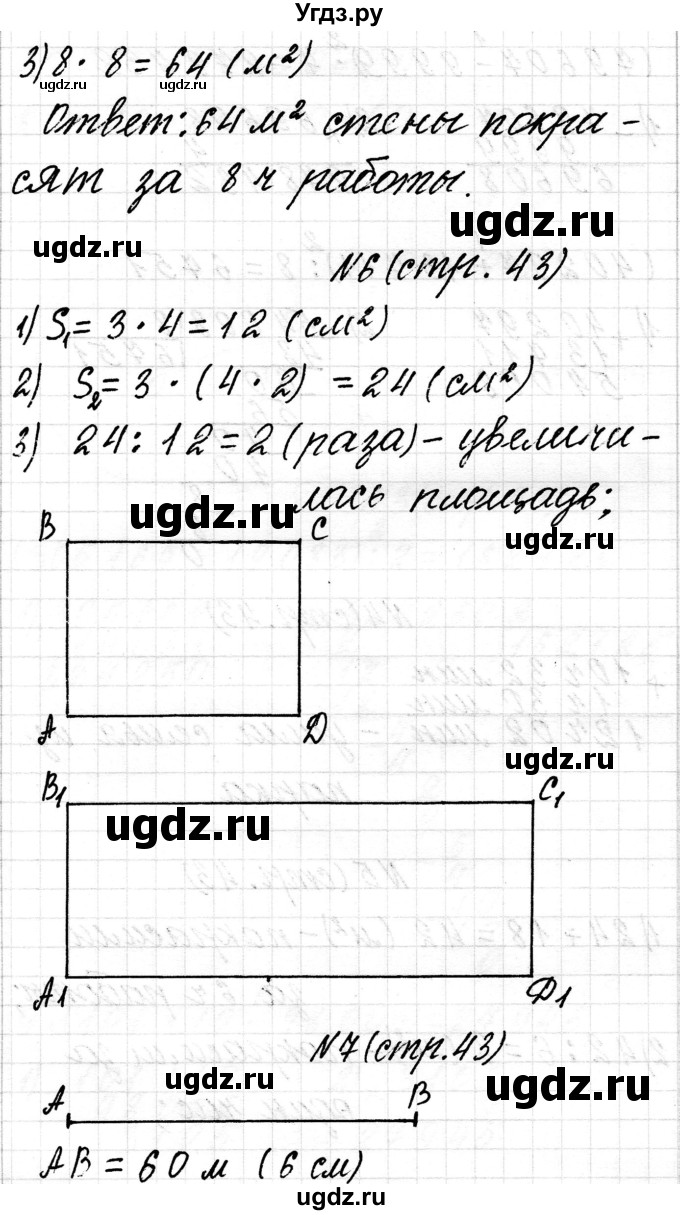 Угдз.ру
3) 8 · 8 = 64 (м²)
ugdz.ru ugdz.ru
Ответ: 64 м² стены покра -
сят за 8 ч работы.
ugdz.ru
ugdz.ru
N6 (стр. 43)
1) S₁ = 3 · 4 = 12 (см²)
2) S₂ = 3 · (4 · 2) = 24 (см²)
3) 24 : 12 = 2 (раза) - увеличи -
лась площадь;
ugdz.ru
ugdz.ru
B C
A D
ugdz.ru
B₁ C₁
ugdz.ru
A1 D1
N7 (стр. 43)
ugdz.ru
ugdz.ru
A B
AB = 60 м (6 см)
ugdz.ru